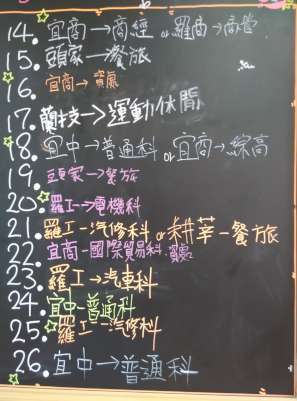 14. 宜商→商經 or 羅商→商管
15. 頭家→餐旅
16. 宜商→資處
17. 蘭技→運動休閒
18. 宜中→普通科 or 宜商→綜高
19. 頭家→餐旅
20. 羅工→電機科
21. 羅工-汽修科 or 耕莘-餐旅
22. 宜商-國際貿易科.
23. 羅工→汽車科
24. 宜中-普通科
25. 羅工-汽修科
26. 宜中→普通科